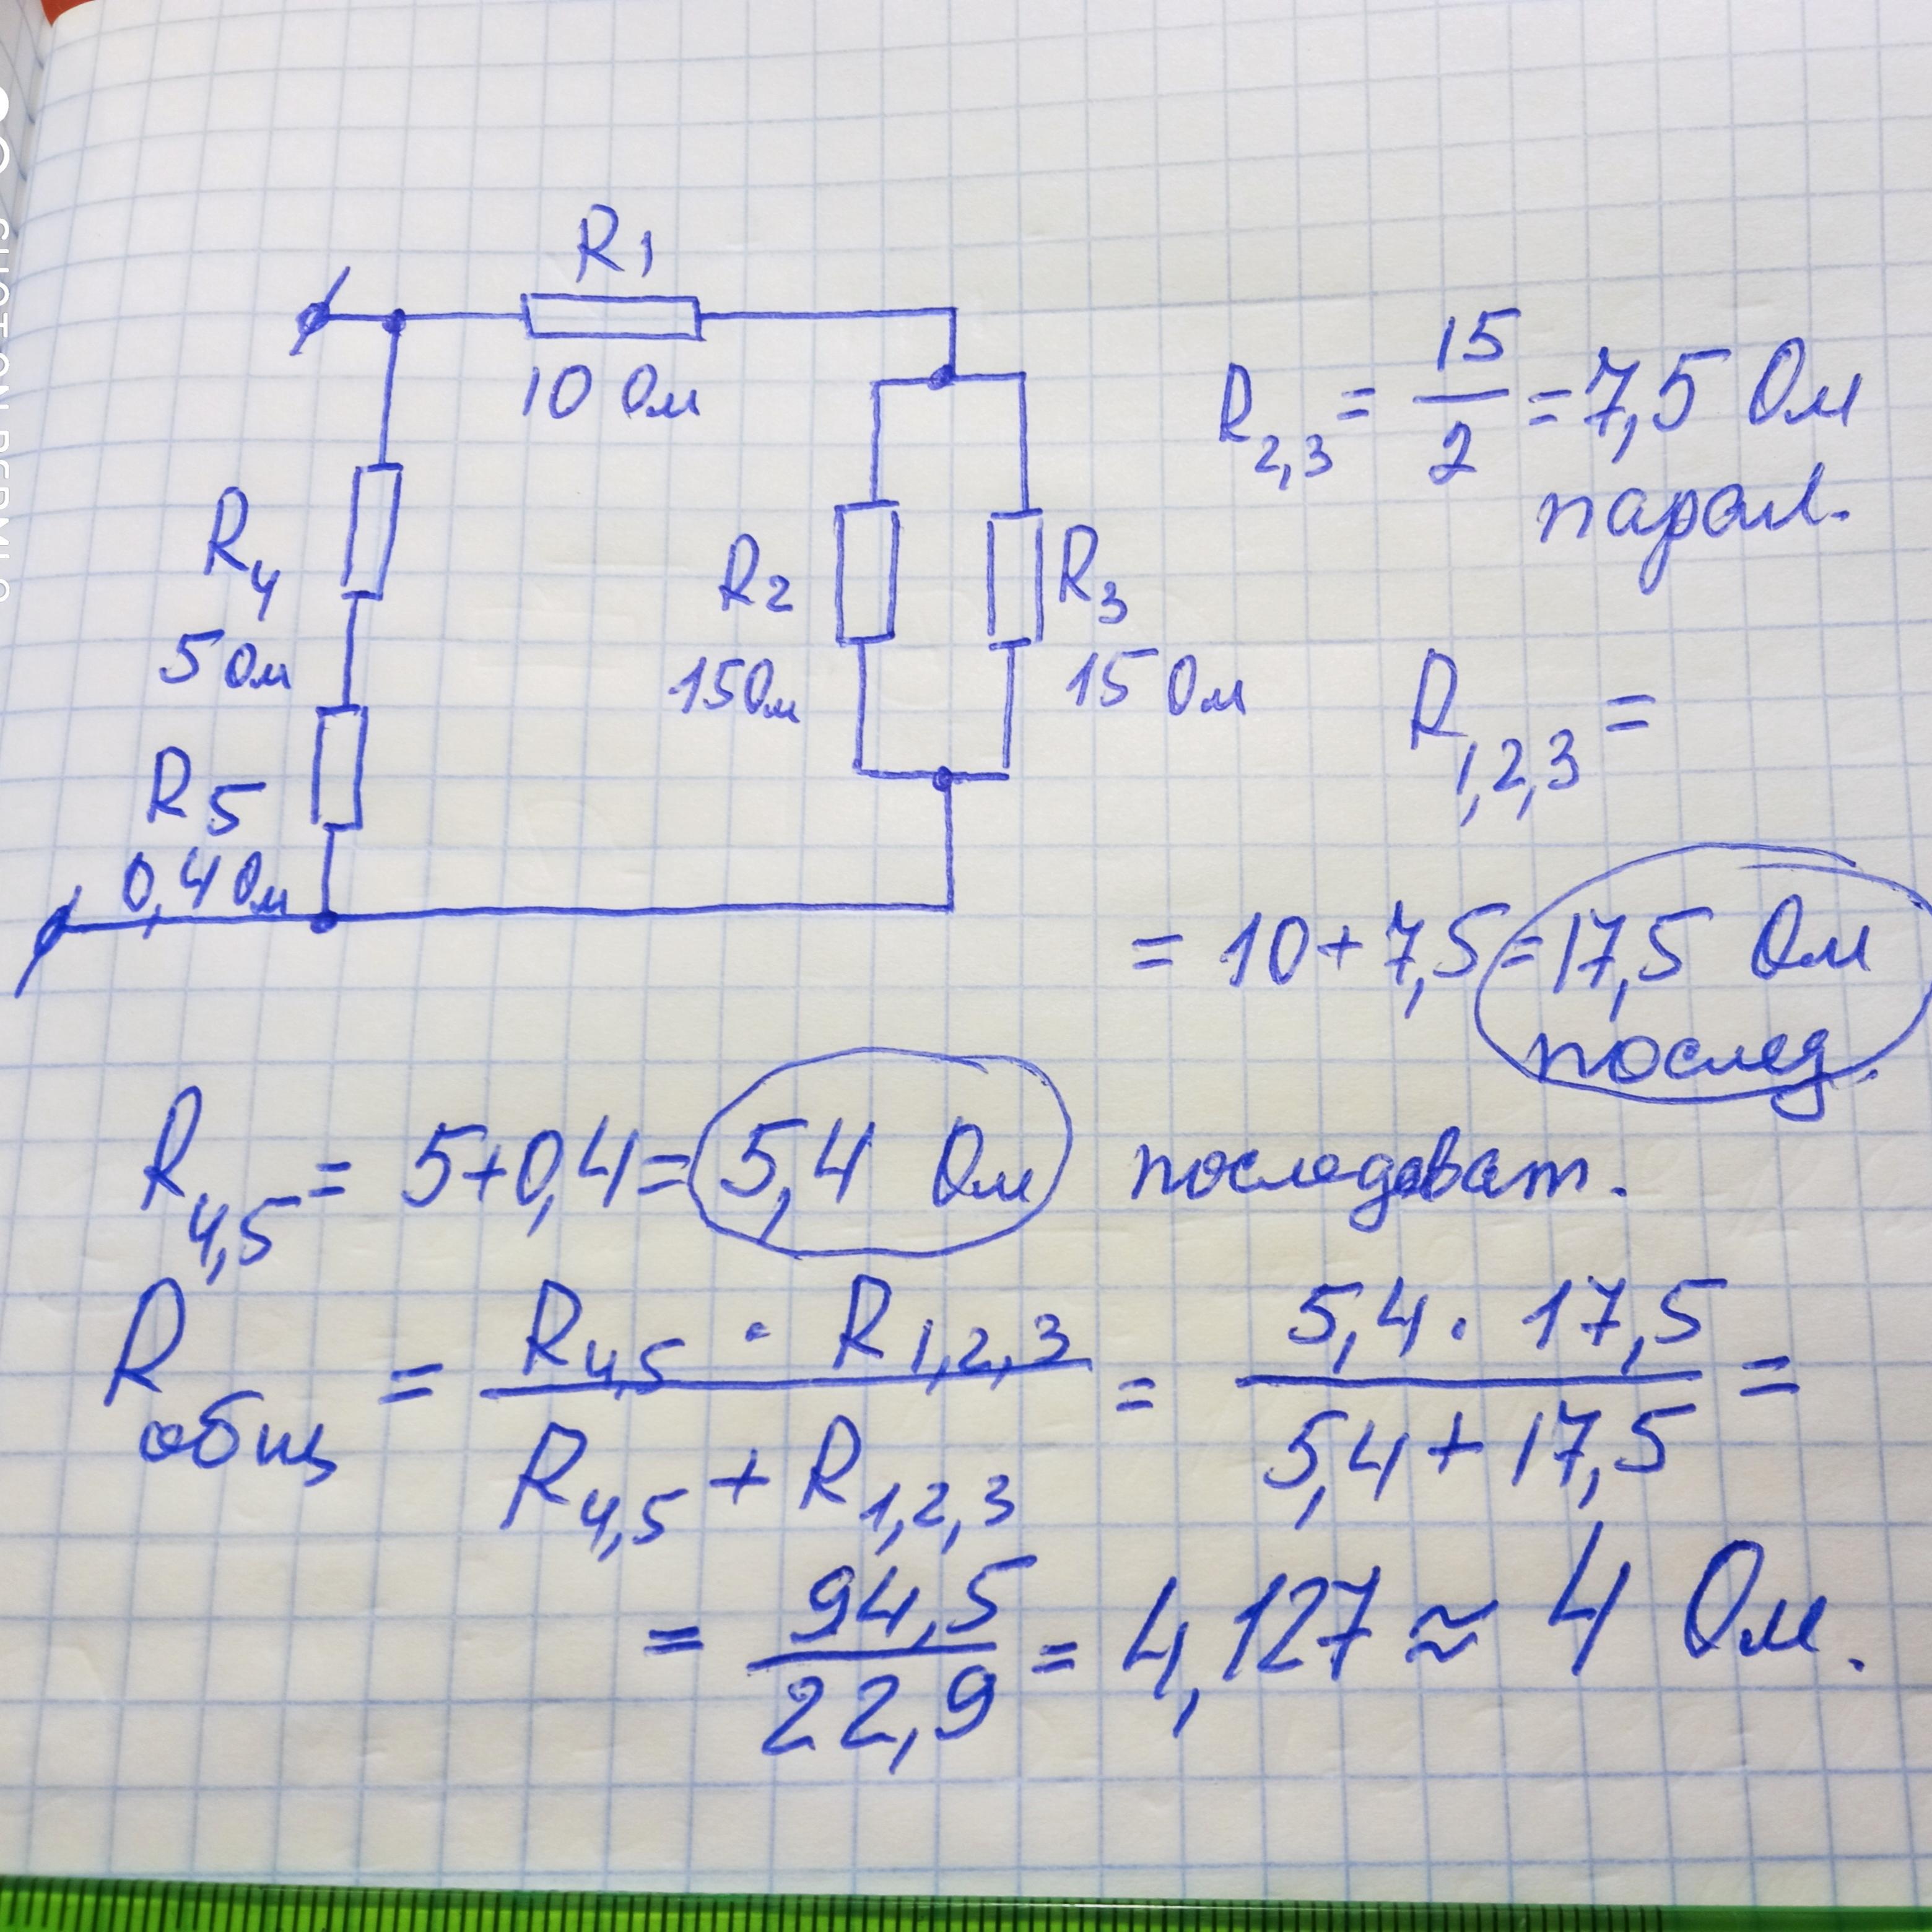 R1
10 Ом
R4
5 Ом
R5
0,4 Ом
R2
15 Ом
R3
15 Ом
R2,3 = 15/2 = 7,5 Ом
парал.
R1,2,3 =
= 10 + 7,5 = 17,5 Ом
послед.
R4,5 = 5+0,4 = 5,4 Ом последоват.
Rобщ = R4,5 · R1,2,3 / R4,5 + R1,2,3 = 5,4 · 17,5 / 5,4 + 17,5 =
= 94,5 / 22,9 = 4,127 ≈ 4 Ом.